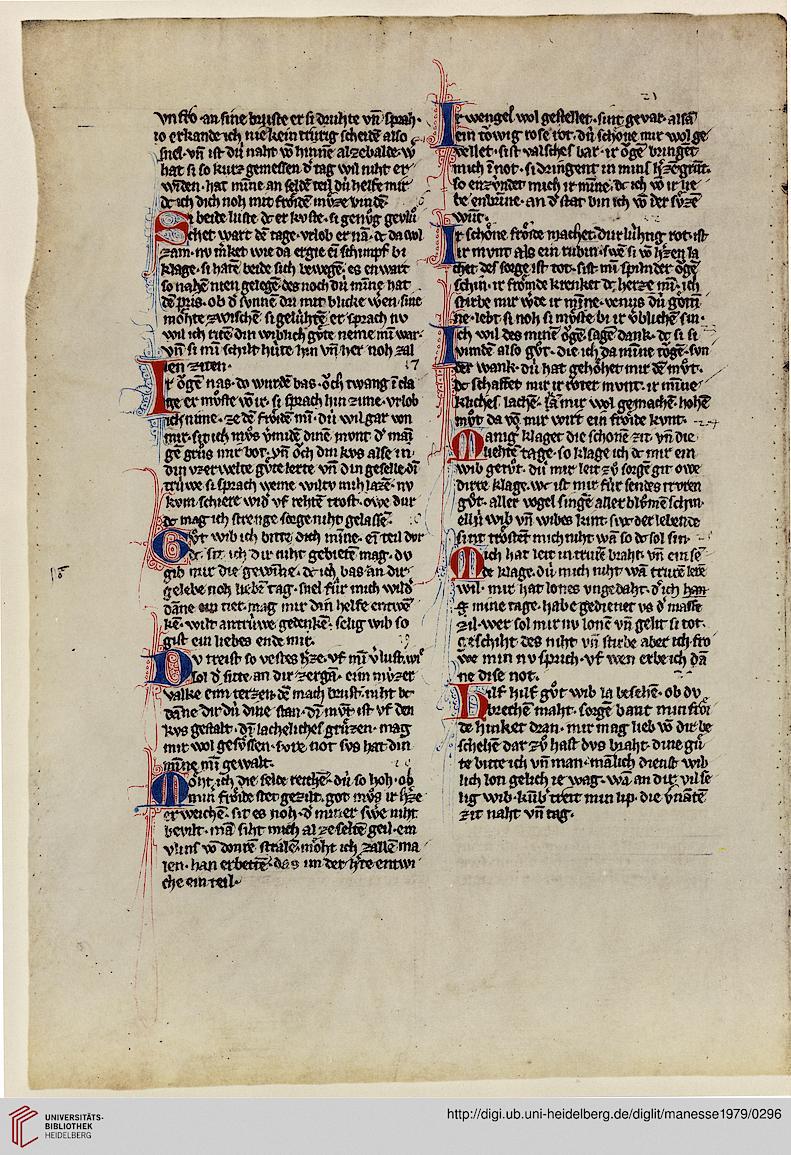 vn fro · an sine bruste er si druhte vn̄ sprah ·
so erkande ich nie kein trurig scheidē also
snel · vn̄ ist dú naht vō hinnē alzebalde · w
hat si so kurz gemessen · d tag wil niht er
wīden · hat mīne an selde teil dú helfe mir
dc ich dich noh mit frōidē mvͤze vindē ·
Si beide luste dc er kvste · si genvͦg
wart dē tage · vrlob er nā · dc da wol
zam · nv mͤket wie da ergie eī schimpf bi
klage · si hatē beide sich bewegē · es en wart
so nahē nien gelegē des noch dú mīne hat
dē pris · ob d svnnē dri mit blicke wͤen · sine
mōhte zwischē si gelúhtē er sprach nv
wil ich ritē din wiblich gvͤte neme mī war ·
vn̄ si mī schilt húte hin vn̄ her noh zal
len ziten ·
Ir ōgē nas · do wurdē bas · ōch twang ī cla
ge er mvͦste vō ir · si sprach hin zime · vrlob
ich nime · ze dē frōidē mī · dú wil gar von
mir · sit ich mvͦs vmidē dinē mvnt · d manī
gē grvͦs mir bot · vn̄ ōch din kvs alse in
din vzerwelte gvͤte lerte vn̄ din geselle dī
trúwe si sprach weme wiltv mih lazē · nv
kvm schiere wid vf rehtē trost · owe dur
dc mag ich strenge sorge niht gelassē ·
Gvͦt wib ich bitte dich mīne · eī teil dvr
dc · sit ich dir niht gebietē mag · dv
gib mir die gewīhe · dc ich bas an dir ·
gelebe noh liebē tag · snel fúr mich wild
dāne ein tier · mag mir din helfe entwē
kē · wilt an trúwe gedenkē · selig wib so
gist ein liebes ende mir ·
Dv treist so vestes hͤze · vf mī vlust · wi
sol d sitte an dir zergā · ein mvzer
valke ein terzen · dē mach brust · niht bc
dāne dir dú dine stan · dī mvt ist vf den
kvs gestalt · dī lacheliches grvͤzen · mag
mir wol gesvͤssen · svre not svs hat din
mīne mī gewalt ·
Mōht ich die selde reichē · dú so hoh · ob
min frōide stet gezilt · got mvͦs ir hͤze
erweichē · sit es noh · d miner swe niht
bevilt · mā siht mich al ze seltē geil · ein
vlins vō donrē stralē · mōht ich zallē ma
len · han erbettē · das im der hͤte entwi
che ein teil ·
Ir wengel wol gestellet · sint gevar · alsā
ein tōwig rose rot · dú schōne mir wol ge
vellet · si ist valsches bar · ir ōgē bringēt
mich ī not · si dringent in mins hͤzē grūt ·
so enzúndet mich ir mine · dc ich vō ir lie
be enbrīne · an d stat bin ich vō der svͤze
wūt ·
Ir schōne frōide machet · dur lúhtig rot · ist
ir mvnt als ein rubin · swē si vō hͤzen la
chet des sorge ist tot · sist mī spilnder ōgē
schin · ir frōmde krenket dc herze mī · ich
stirbe mir wͤde ir mīne · venus dú gōtin
ne · lebt si noh si mvͤste bi ir vͤblichē sin ·
Ich wil des minē ōgē sagē dank · dc si si
vundē also gvͦt · die ich da mīne tōgē · svn
der wank · dú hat gehōhet mir dē mvͦt ·
dc schaffet mir ir roter mvnt · ir mīne
kliches lachē · kā mir wol gemachē · hohē
mvͦt da vō mir wirt ein frōide kvnt ·
Manig klaget die schonē zit vn̄ die
liehtē tage · so klage ich dc mir ein
wib getvͦt · dú mir leit zvͦ sorgē git owe
dirre klage · wc ist mir fúr sendes truren
gvͦt · aller vogel singē aller blvͦmē schin ·
ellú wib vn̄ wibes kint swc der lebende
sint trōstēt mich niht wā so dc sol sin ·
Mich hat leit in trure braht · vn̄ ein se
de klage · dú mich niht wā trurē lerē
wil · mir hat lones vngedaht · d ich han
g mine tage · habe gedienet vs d masse
zil · wer sol mir nv lonē vn̄ gelit si tot ·
geschiht des niht vn̄ stirbe aber ich · fro
we min nv sprich · vf wen erbe ich dā
ne dise not ·
Hilf hilf gvͦt wib la besehē · ob dv
brechē maht · sorgē bant min frōi
de hinket dran · mir mag lieb vō dir be
schehē dar zvͦ hast dvs braht · dine gvͤ
te bitte ich vn̄ man · mālich dienst wib
lich lon gelich ie wag · wā an dir vil se
lig wib · kúb trert min lip · die gnātē
zit naht vn̄ tag ·
UNIVERSITÄTS-
BIBLIOTHEK
HEIDELBERG
http://digi.ub.uni-heidelberg.de/diglit/manesse1979/0296